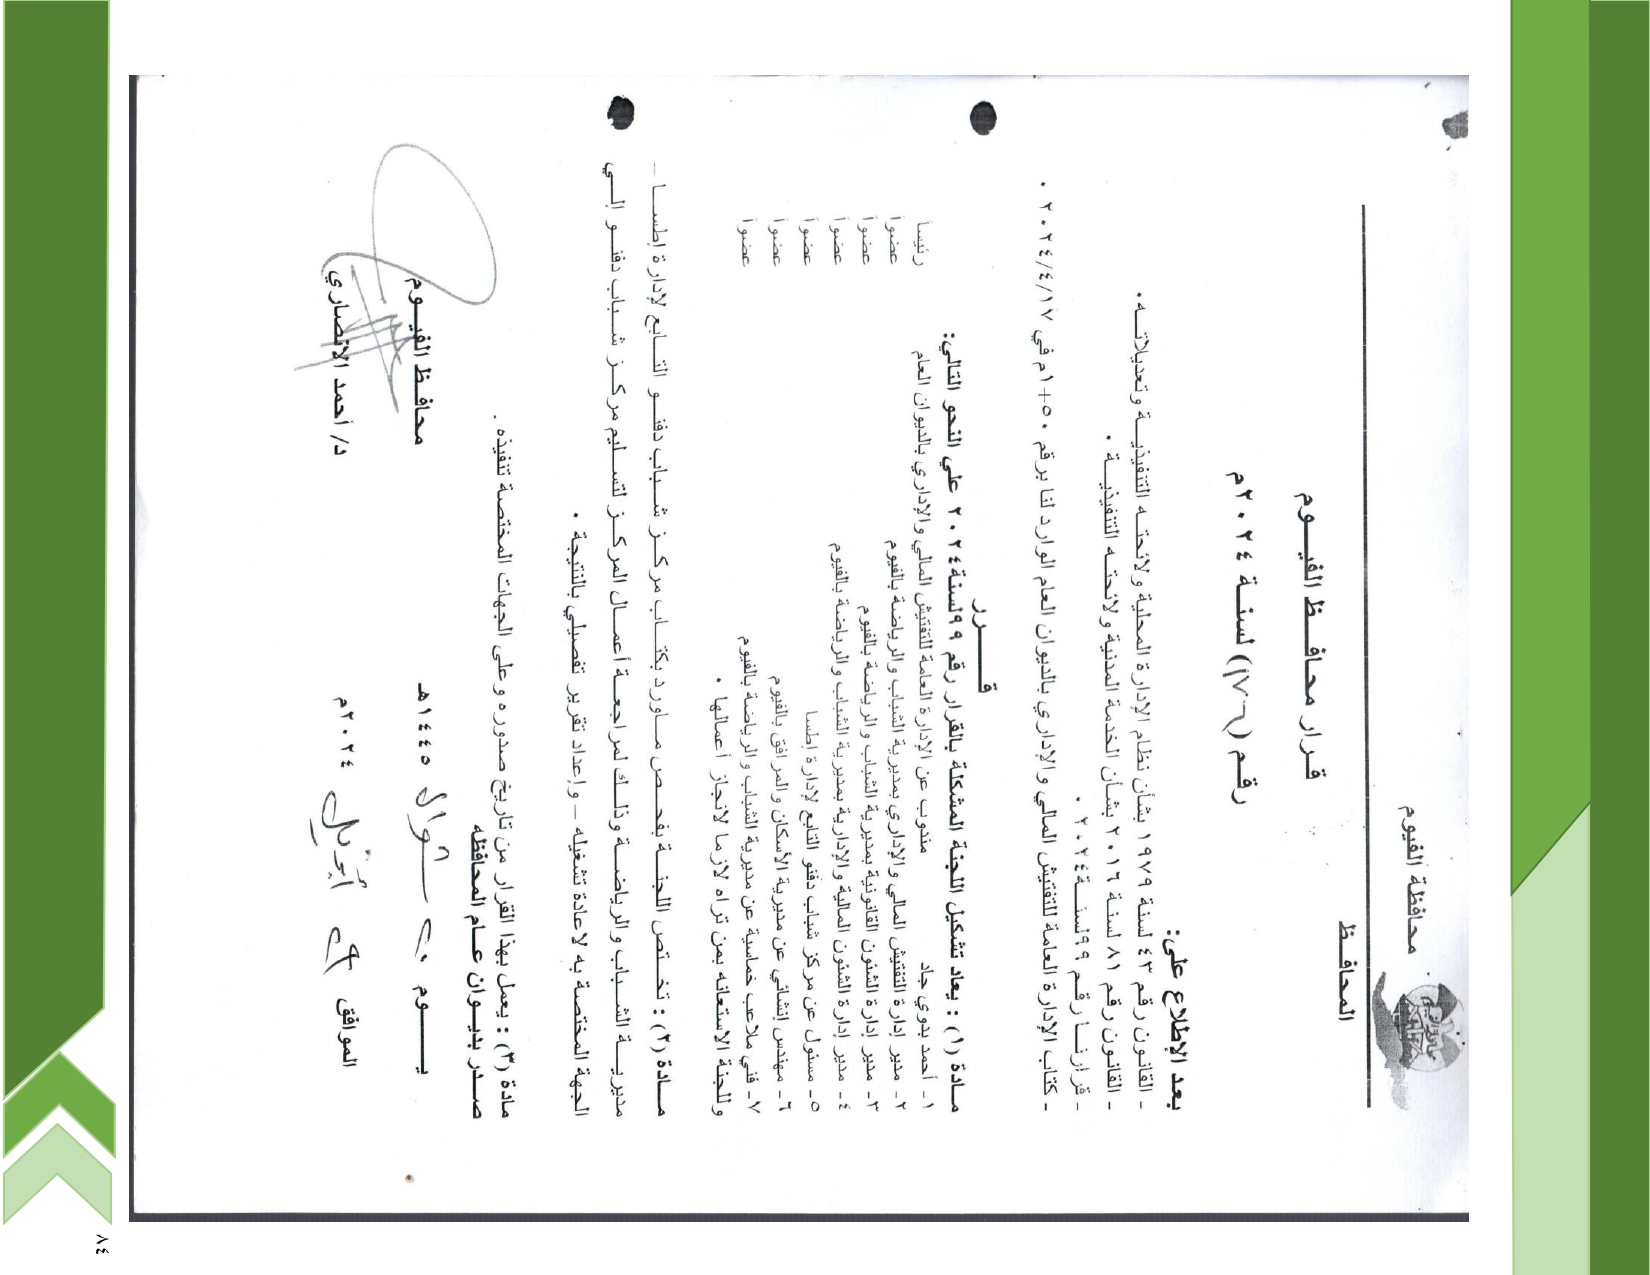 محافظة الفيوم
المحافـــظ
قرار محافـــظ الفيـــوم
رقم (١٧٦) لسنـة ٢٠٢٤م
بعد الإطلاع على:
- القانون رقم ٤٣ لسنة ١٩٧٩ بشأن نظام الإدارة المحلية ولائحته التنفيذيـة وتعديلاتـه.
- القانون رقم ٨١ لسنة ٢٠١٦ بشأن الخدمة المدنية ولائحتـه التنفيذيـة .
- قرارنـا رقم ٩٩ لسنـة ٢٠٢٤ .
- كتاب الإدارة العامة للتفتيش المالي والإداري بالديوان العام الوارد لنا برقم ١+٥٠م في ٢٠٢٤/٤/١٧ .
قـــــرر
مـادة (١) : يعاد تشكيل اللجنة المشكلة بالقرار رقم ٩٩ لسنة ٢٠٢٤ علي النحو التالي:
١- أحمد بدوي جاد مندوب عن الإدارة العامة للتفتيش المالي والإداري بالديوان العام رئيسا
٢- مدير إدارة التفتيش المالي والإداري بمديرية الشباب والرياضة بالفيوم عضواً
٣- مدير إدارة الشئون القانونية بمديرية الشباب والرياضة بالفيوم عضواً
٤- مدير إدارة الشئون المالية والإدارية بمديرية الشباب والرياضة بالفيوم عضواً
٥- مسئول عن مركز شباب دفنو التابع لإدارة إطسا عضواً
٦- مهندس إنشائي عن مديرية الأسكان والمرافق بالفيوم عضواً
٧- فني ملاعب خماسية عن مديرية الشباب والرياضة بالفيوم عضواً
وللجنة الاستعانه بمن تراه لازما لانجاز أعمالها .
مـادة (٢) : تختص اللجنـة بفحـص مـاورد بكتـاب مركـز شـباب دفنـو التـابع لإدارة إطسـا –
مديريـة الشـباب والرياضـة وذلـك لمراجعـة أعمـال المركـز لتسـليم مركـز شـباب دفنـو إلـي
الجهة المختصة به لاعادة تشغيله – وإعداد تقرير تفصيلي بالنتيجة .
مادة (٣) : يعمل بهذا القرار من تاريخ صدوره وعلى الجهات المختصة تنفيذه .
صـدر بديـوان عـام المحافظه
يـــوم ٢٠ شوال ١٤٤٥هـ
الموافق ٢٩ أبريل ٢٠٢٤م
محافـظ الفيـوم
د/ أحمد الانصاري
٨٤